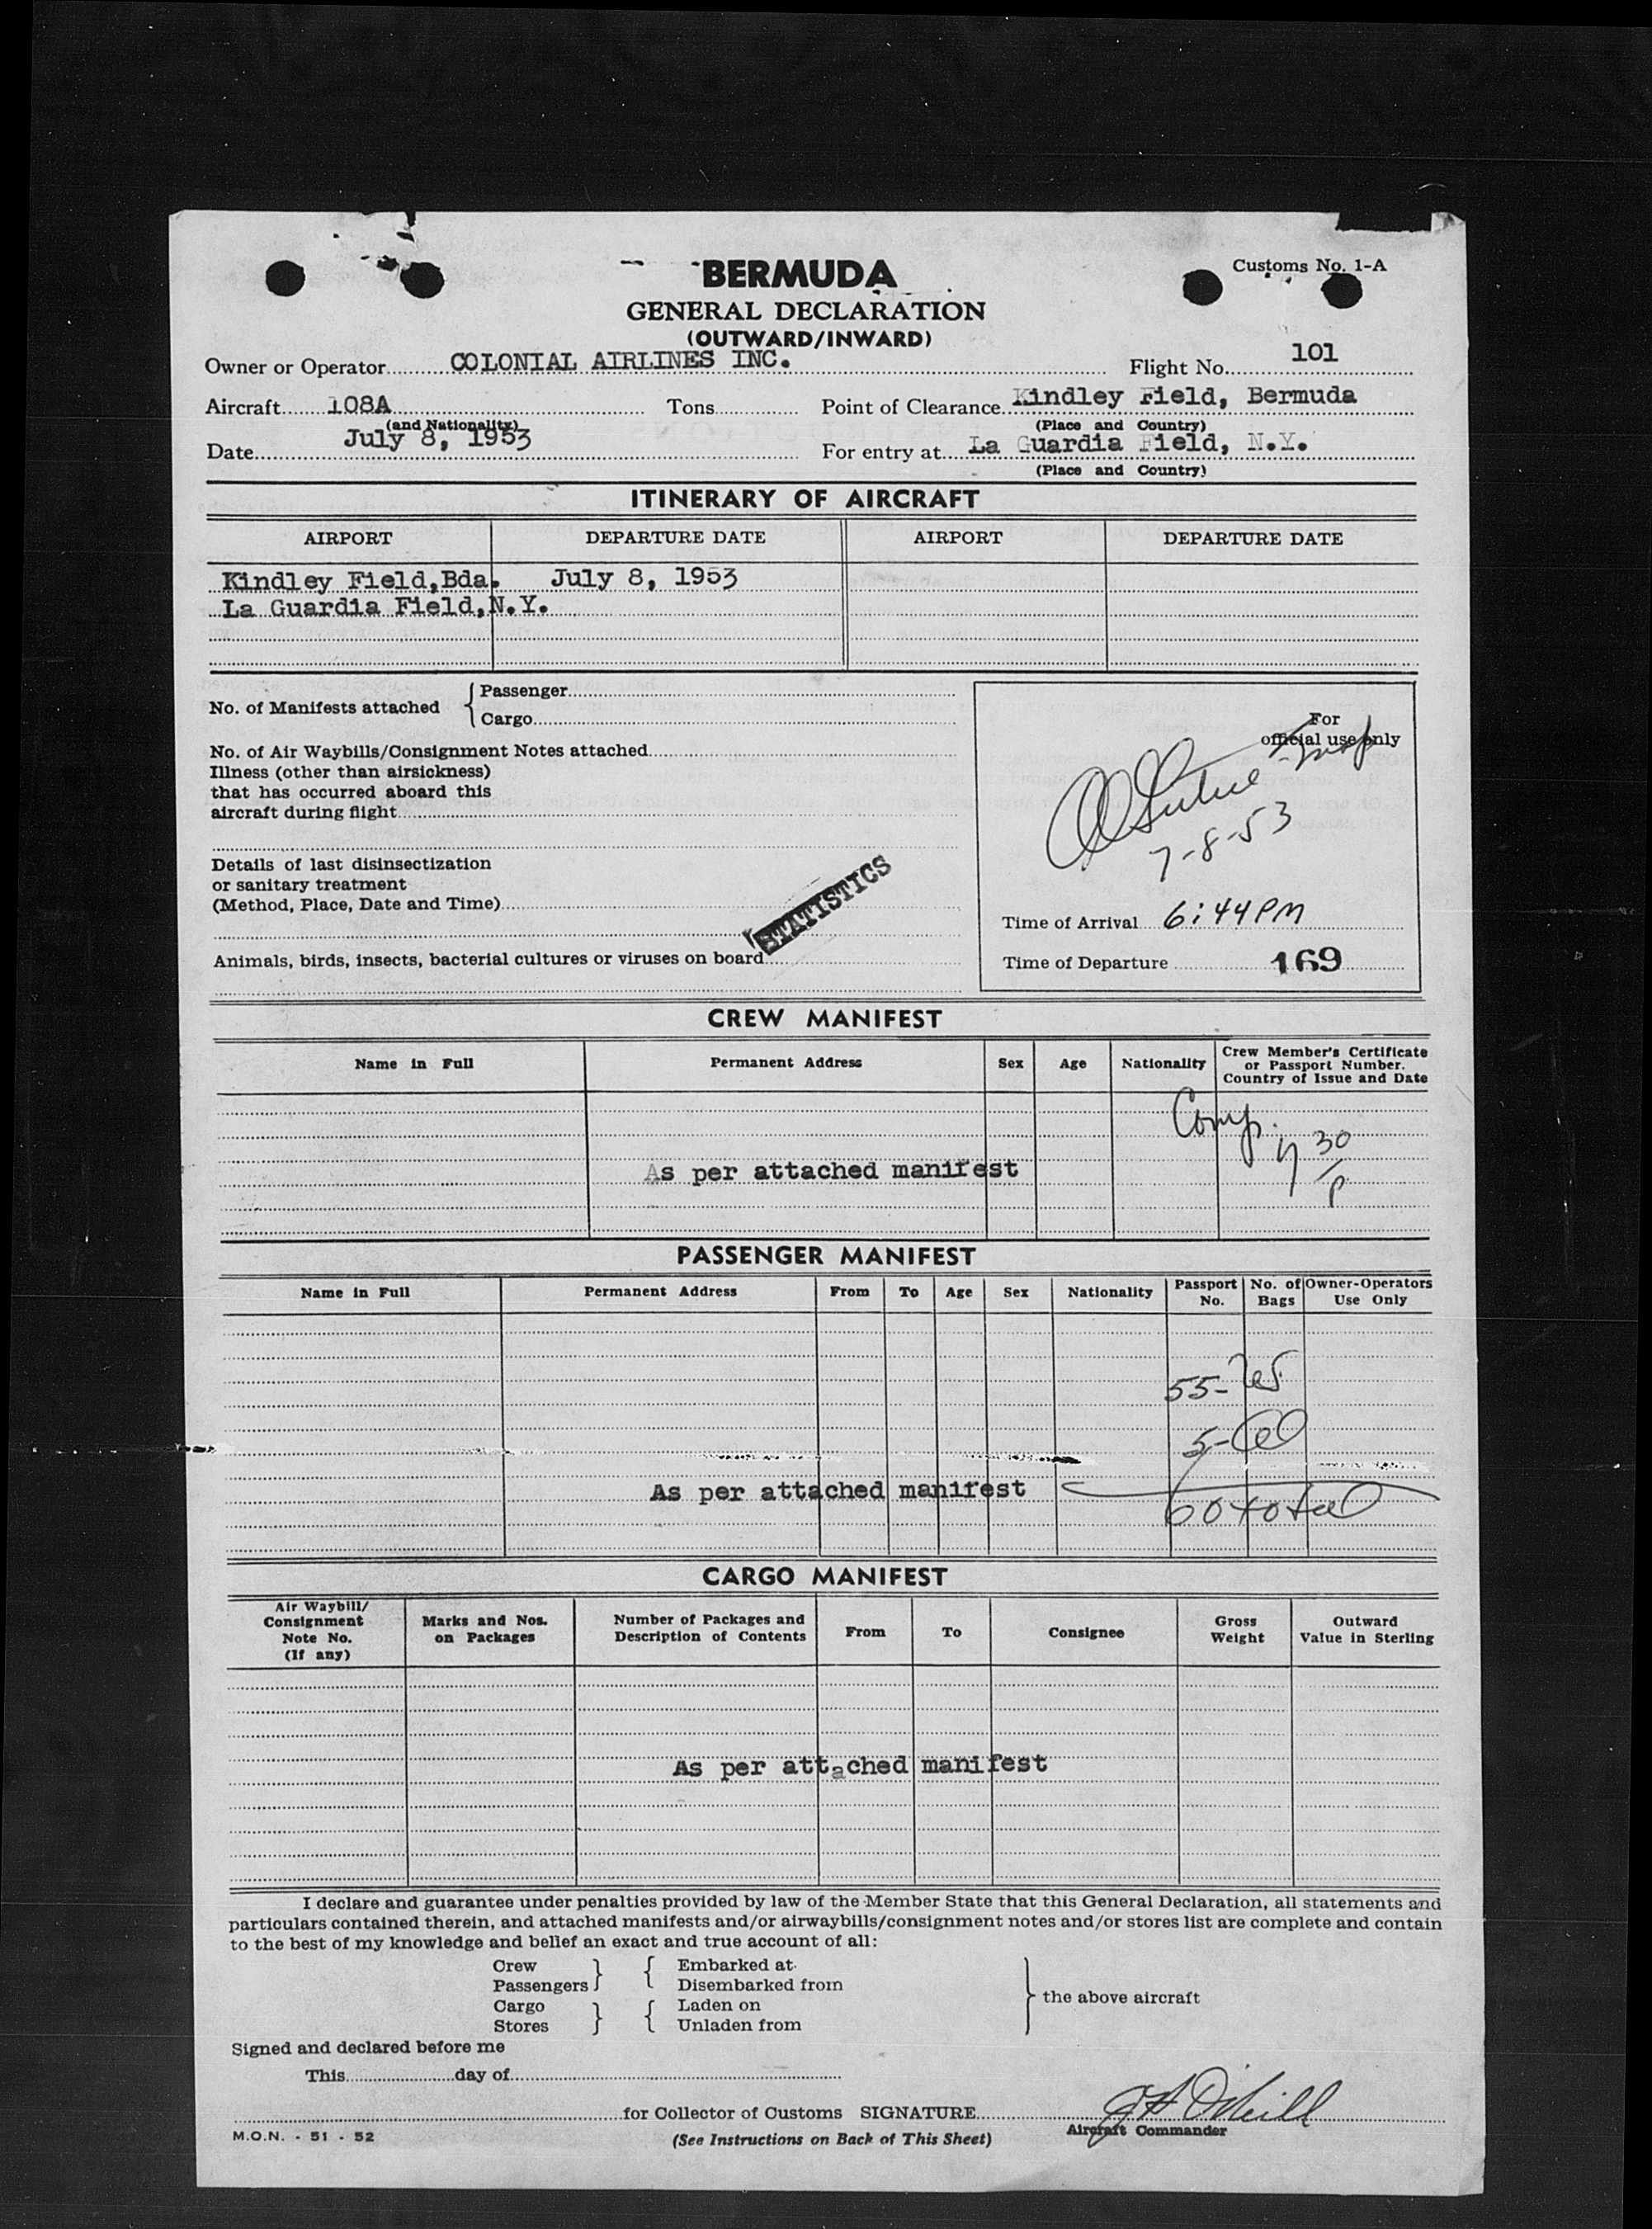 BERMUDA
Customs No. 1-A
GENERAL DECLARATION
(OUTWARD/INWARD)
Owner or Operator COLONIAL AIRLINES INC. Flight No. 101
Aircraft 108A Tons Point of Clearance Kindley Field, Bermuda
(and Nationality) (Place and Country)
Date July 8, 1953 For entry at La Guardia Field, N.Y.
(Place and Country)
ITINERARY OF AIRCRAFT
AIRPORT DEPARTURE DATE AIRPORT DEPARTURE DATE
Kindley Field, Bda. July 8, 1953
La Guardia Field, N.Y.
No. of Manifests attached { Passenger
Cargo
No. of Air Waybills/Consignment Notes attached
Illness (other than airsickness)
that has occurred aboard this
aircraft during flight
Details of last disinsectization
or sanitary treatment
(Method, Place, Date and Time)
STATISTICS
Animals, birds, insects, bacterial cultures or viruses on board
For
official use only
7-8-53
Time of Arrival 6:44 PM
Time of Departure 169
CREW MANIFEST
Name in Full Permanent Address Sex Age Nationality Crew Member's Certificate
or Passport Number.
Country of Issue and Date
Comp.
7 30
P
As per attached manifest
PASSENGER MANIFEST
Name in Full Permanent Address From To Age Sex Nationality Passport No. No. of Bags Owner-Operators Use Only
55-
5-
As per attached manifest
60 total
CARGO MANIFEST
Air Waybill/
Consignment
Note No.
(If any)
Marks and Nos.
on Packages
Number of Packages and
Description of Contents
From To Consignee
Gross
Weight
Outward
Value in Sterling
As per attached manifest
I declare and guarantee under penalties provided by law of the Member State that this General Declaration, all statements and
particulars contained therein, and attached manifests and/or airwaybills/consignment notes and/or stores list are complete and contain
to the best of my knowledge and belief an exact and true account of all:
Crew } { Embarked at
Passengers Disembarked from
} the above aircraft
Cargo } { Laden on
Stores Unladen from
Signed and declared before me
This day of
for Collector of Customs SIGNATURE J H O'Neill
Aircraft Commander
M.O.N. - 51 - 52
(See Instructions on Back of This Sheet)